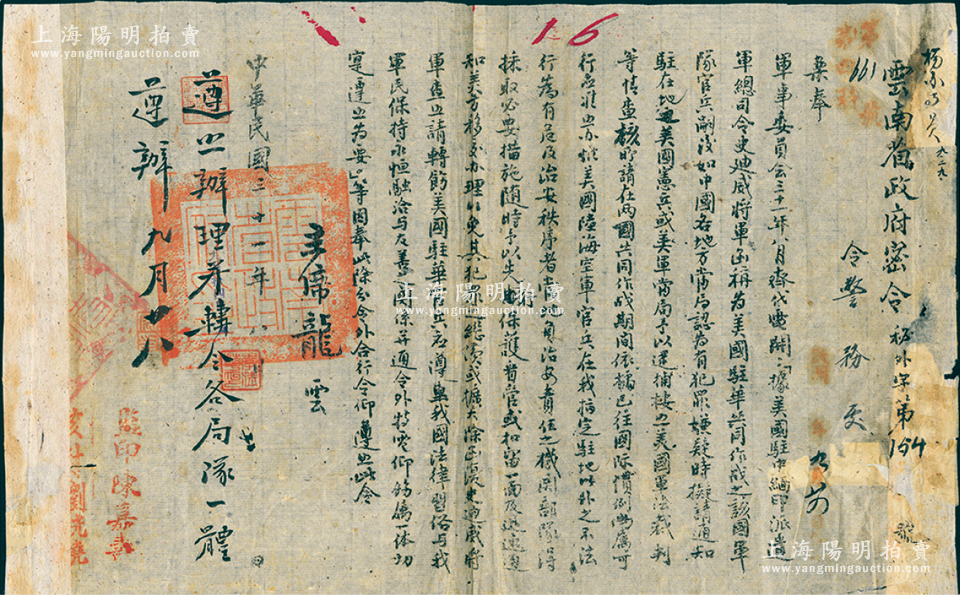 楊永明 吳 九.二九.
雲南省政府密令 秘外字第154號
661
令警務處
案奉
軍事委員會三十一年八月齊代電開「據美國駐中緬印派遣
軍總司令史迪威將軍函稱為美國駐華共同作戰之該國軍
隊官兵嗣後如中國各地方當局認為有犯罪嫌疑時擬請通知
駐在地之美國憲兵或美軍當局予以逮捕按之美國軍法裁判
等情查核所請在兩國共同作戰期間依據已往國際慣例尚屬可
行應准照辦惟美國陸海空軍官兵在我指定駐地以外之不法
行為有危及治安秩序者當地負治安責任之機關部隊得
採取必要措施隨時予以先行保護看管或扣留一面及迅速通
知美方移交辦理以免其犯罪繼續或擴大除函復史迪威將
軍查照請轉飭美國駐華官兵應遵照我國法律習俗與我
軍民保持永恒融洽與友善之關係並通令外特電仰飭屬一体切
實遵照為要」等因奉此除分令外合行令仰遵照此令
主席龍雲
中華民國三十一年 月 日
遵照辦理並轉令各局隊一體
遵辦 九月廿八
監印陳嘉
校對劉
16
上海陽明拍賣
www.yangmingauction.com
上海陽明拍賣
www.yangmingauction.com
上海陽明拍賣
www.yangmingauction.com